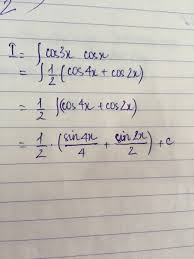 2)
I = ∫cos3x cosx
= ∫1/2 (cos4x + cos2x)
= 1/2 ∫(cos4x + cos2x)
= 1/2 · (sin4x/4 + sin2x/2) + c